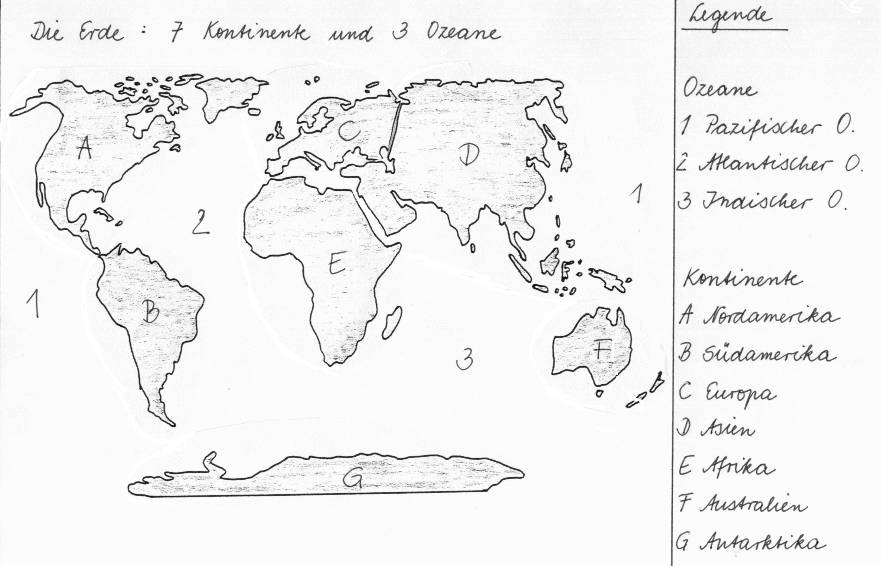 Die Erde : 7 Kontinente und 3 Ozeane
A
C
D
2
1
E
1
B
3
F
G
Legende
Ozeane
1 Pazifischer O.
2 Atlantischer O.
3 Indischer O.
Kontinente
A Nordamerika
B Südamerika
C Europa
D Asien
E Afrika
F Australien
G Antarktika